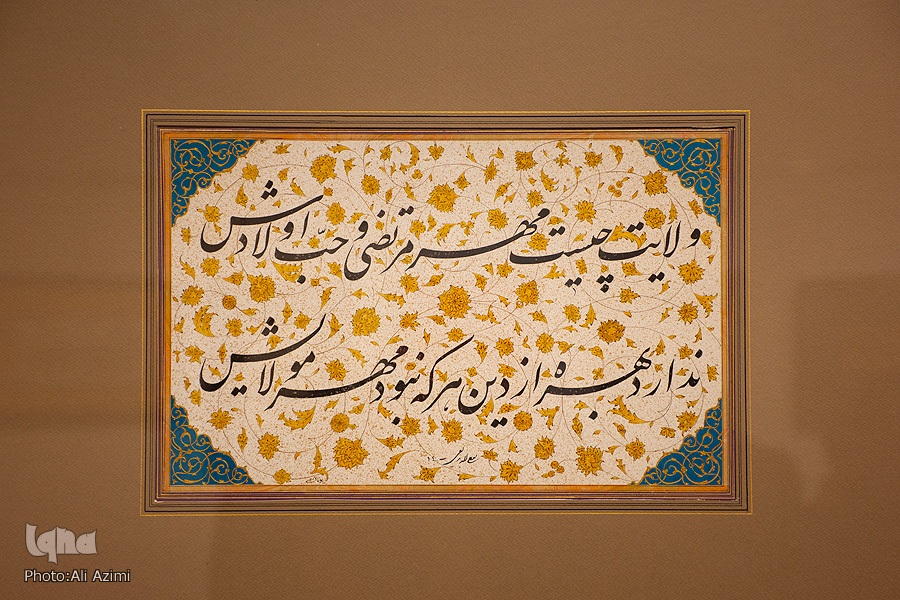 ولایت چیست مهر مرتضی و حبّ اولادش
ندارد بهره از دین هرکه نبود مهر مولایش
Iqna
Photo:Ali Azimi